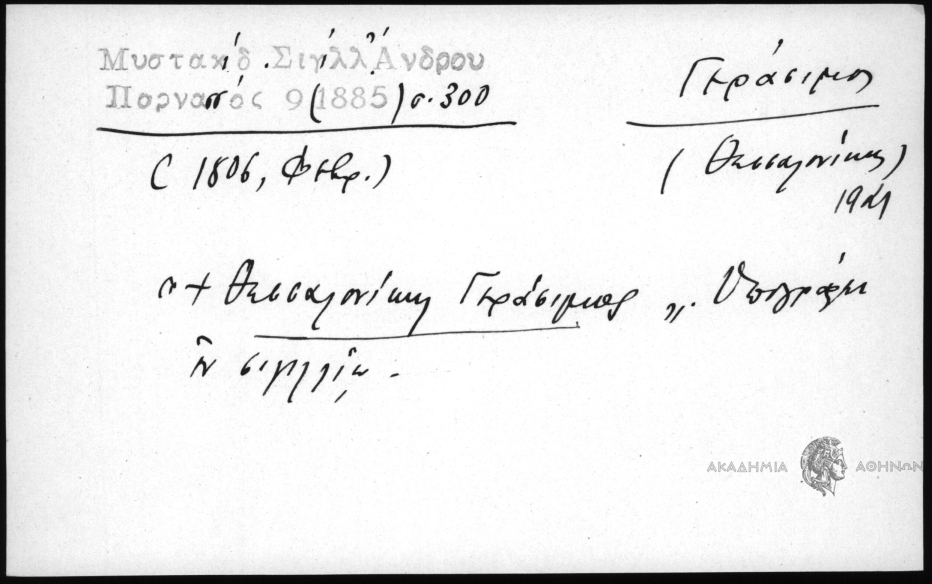 Μυστακίδ. Σιγίλλ Ἄνδρου
Παρνασός 9 (1885) σ. 300
Γεράσιμος
(1806, Φεβρ.)
(Θεσσαλονίκης)
+ Θεσσαλονίκης Γεράσιμος „. Ὑπογράφει
ἐν σιγιλλίῳ.
ΑΚΑΔΗΜΙΑ ΑΘΗΝΩΝ